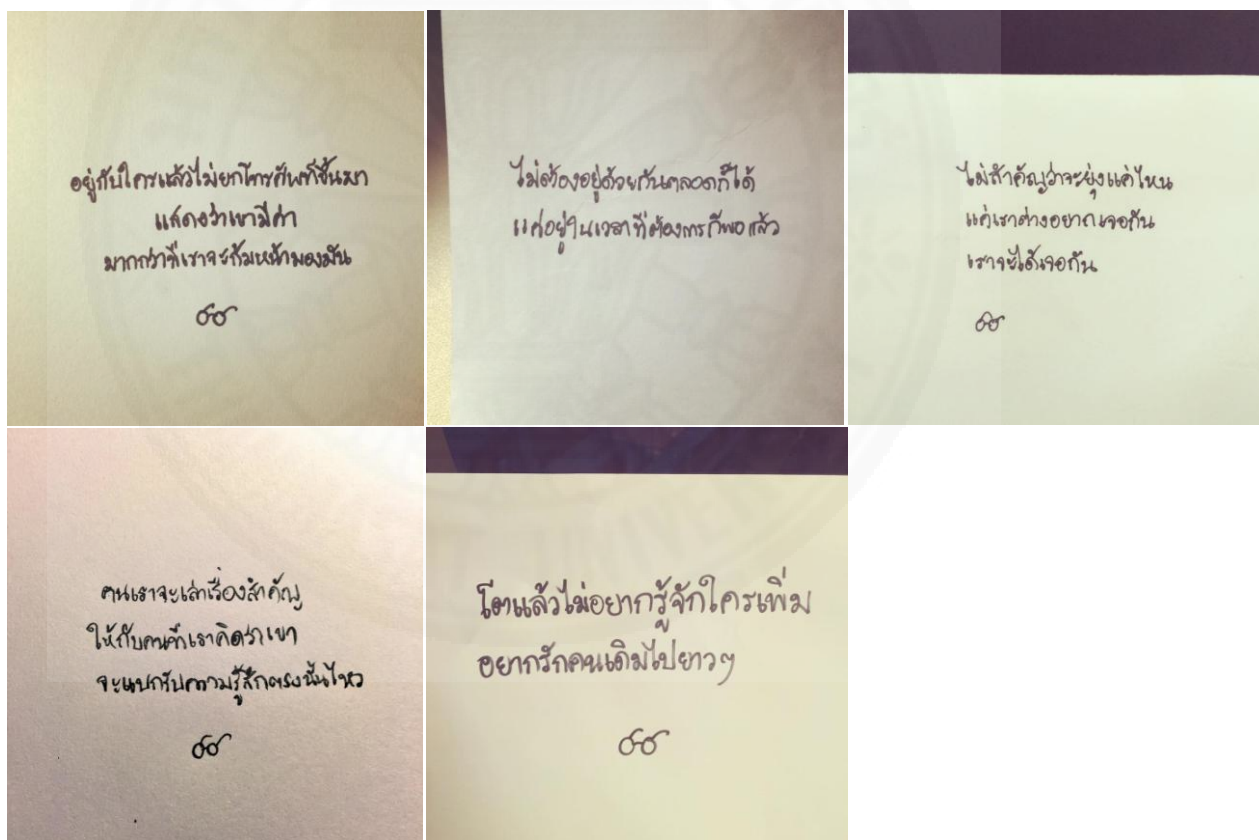 อยู่กับใครแล้วไม่ยกโทรศัพท์ขึ้นมา
แสดงว่าเขามีค่า
มากกว่าที่เราจะก้มหน้ามองมัน
ไม่ต้องอยู่ด้วยกันตลอดก็ได้
แค่อยู่ในเวลาที่ต้องการก็พอแล้ว
ไม่สำคัญว่าจะยุ่งแค่ไหน
แค่เราต่างอยากเจอกัน
เราจะได้เจอกัน
คนเราจะเล่าเรื่องสำคัญ
ให้กับคนที่เราคิดว่าเขา
จะแบกรับความรู้สึกตรงนั้นไหว
โตแล้วไม่อยากรู้จักใครเพิ่ม
อยากรักคนเดิมไปยาวๆ